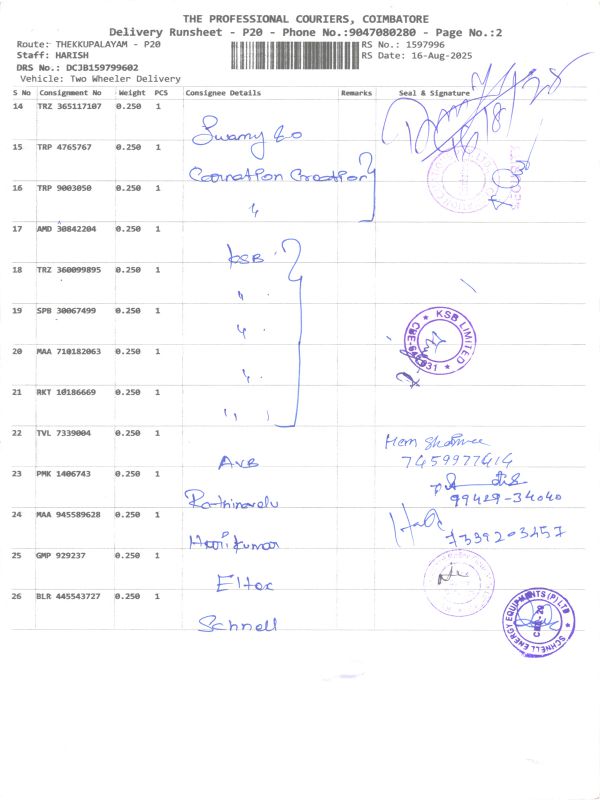 THE PROFESSIONAL COURIERS, COIMBATORE
Delivery Runsheet - P20 - Phone No.:9047080280 - Page No.:2
Route: THEKKUPALAYAM - P20
RS No.: 1597996
Staff: HARISH
RS Date: 16-Aug-2025
DRS No.: DCJB159799602
Vehicle: Two Wheeler Delivery
S No Consignment No Weight PCS Consignee Details Remarks Seal & Signature
14 TRZ 365117107 0.250 1 Swamy & Co
15 TRP 4765767 0.250 1 Coronation Creation
16 TRP 9003050 0.250 1 "
17 AMD 30842204 0.250 1 KSB
18 TRZ 360099895 0.250 1 "
19 SPB 30067499 0.250 1 "
KSB LIMITED
CBE-641031
20 MAA 710182063 0.250 1 "
21 RKT 10186669 0.250 1 "
22 TVL 7339004 0.250 1 AVB Hem Sharma
7459977414
23 PMK 1406743 0.250 1 Rathinavelu
99429-34040
24 MAA 945589628 0.250 1 Harikumar
7339203457
25 GMP 929237 0.250 1 Eltex
26 BLR 445543727 0.250 1 Schnell
SCHNELL ENERGY EQUIPMENTS (P) LTD